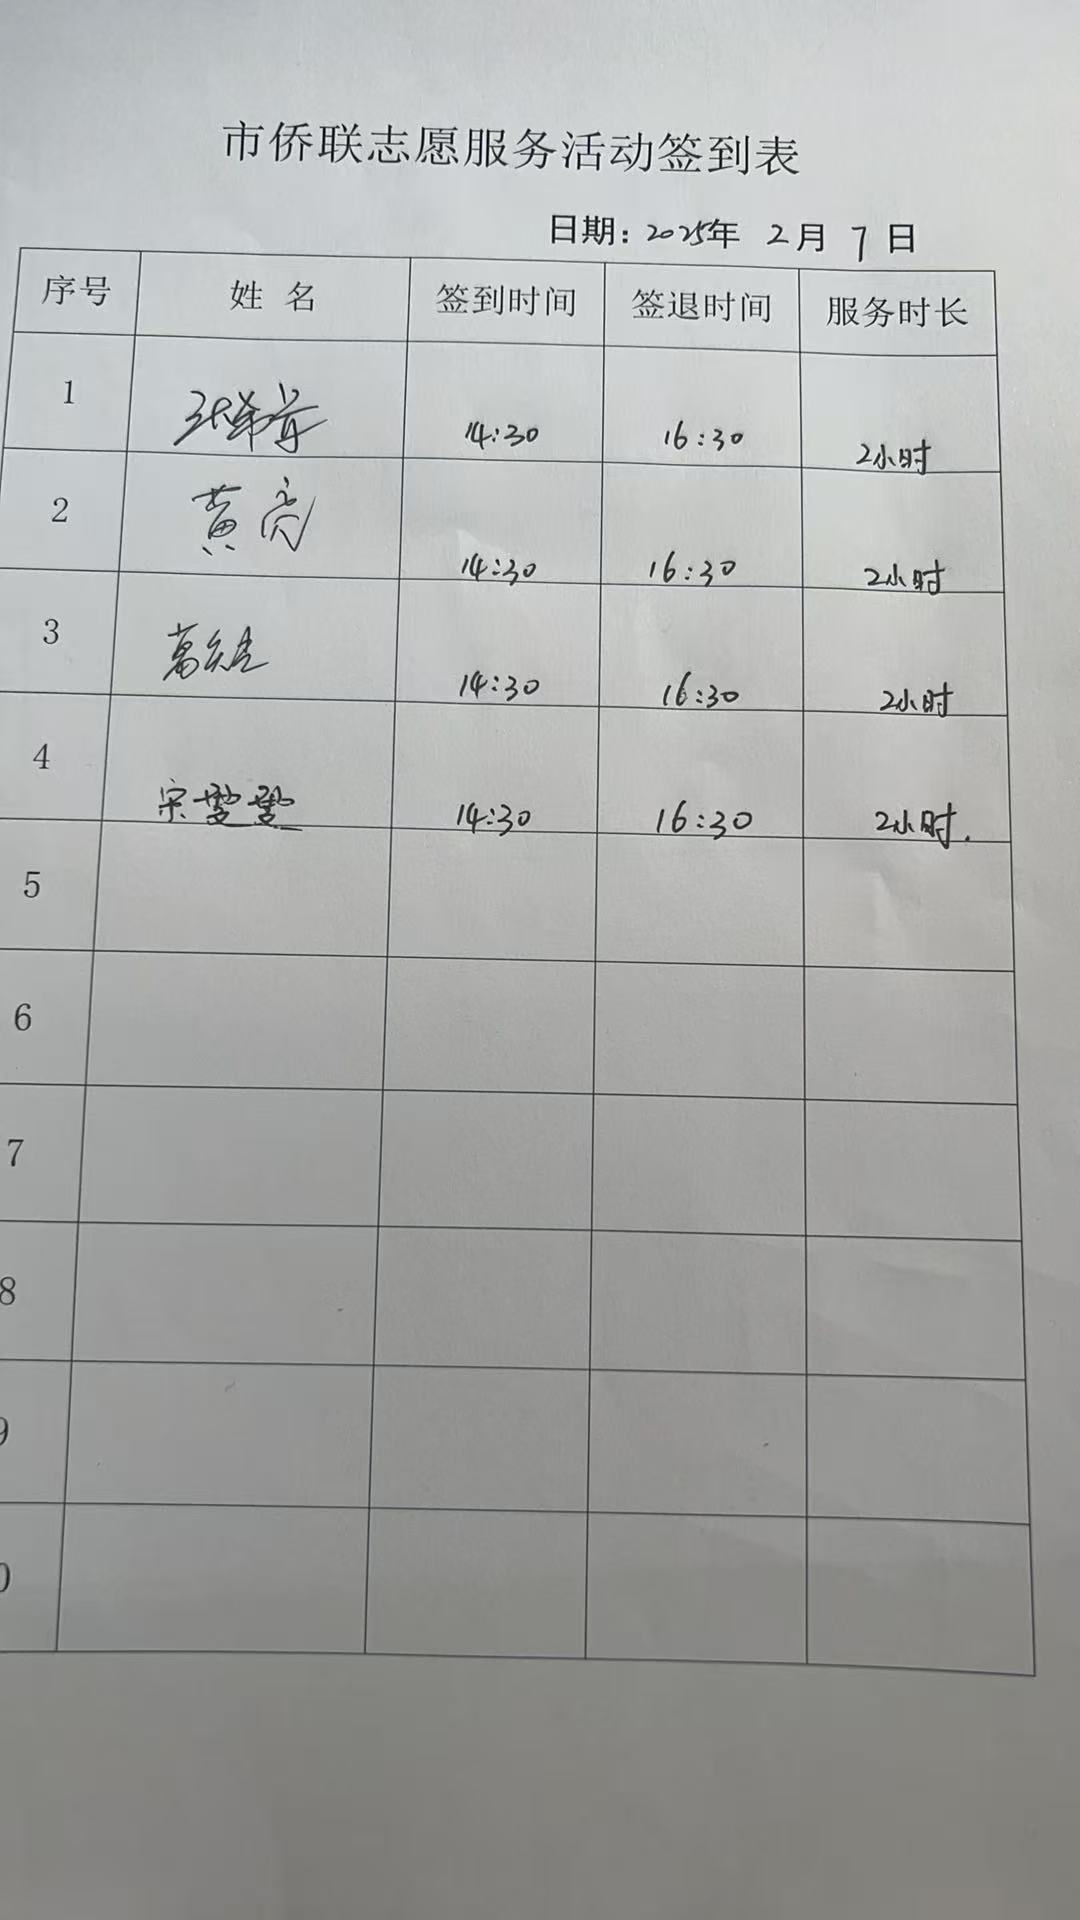 市侨联志愿服务活动签到表
日期：2025年 2月 7日
序号 姓名 签到时间 签退时间 服务时长
1 14:30 16:30 2小时
2 黄亮 14:30 16:30 2小时
3 14:30 16:30 2小时
4 宋雯雯 14:30 16:30 2小时.
5
6
7
8
9
0